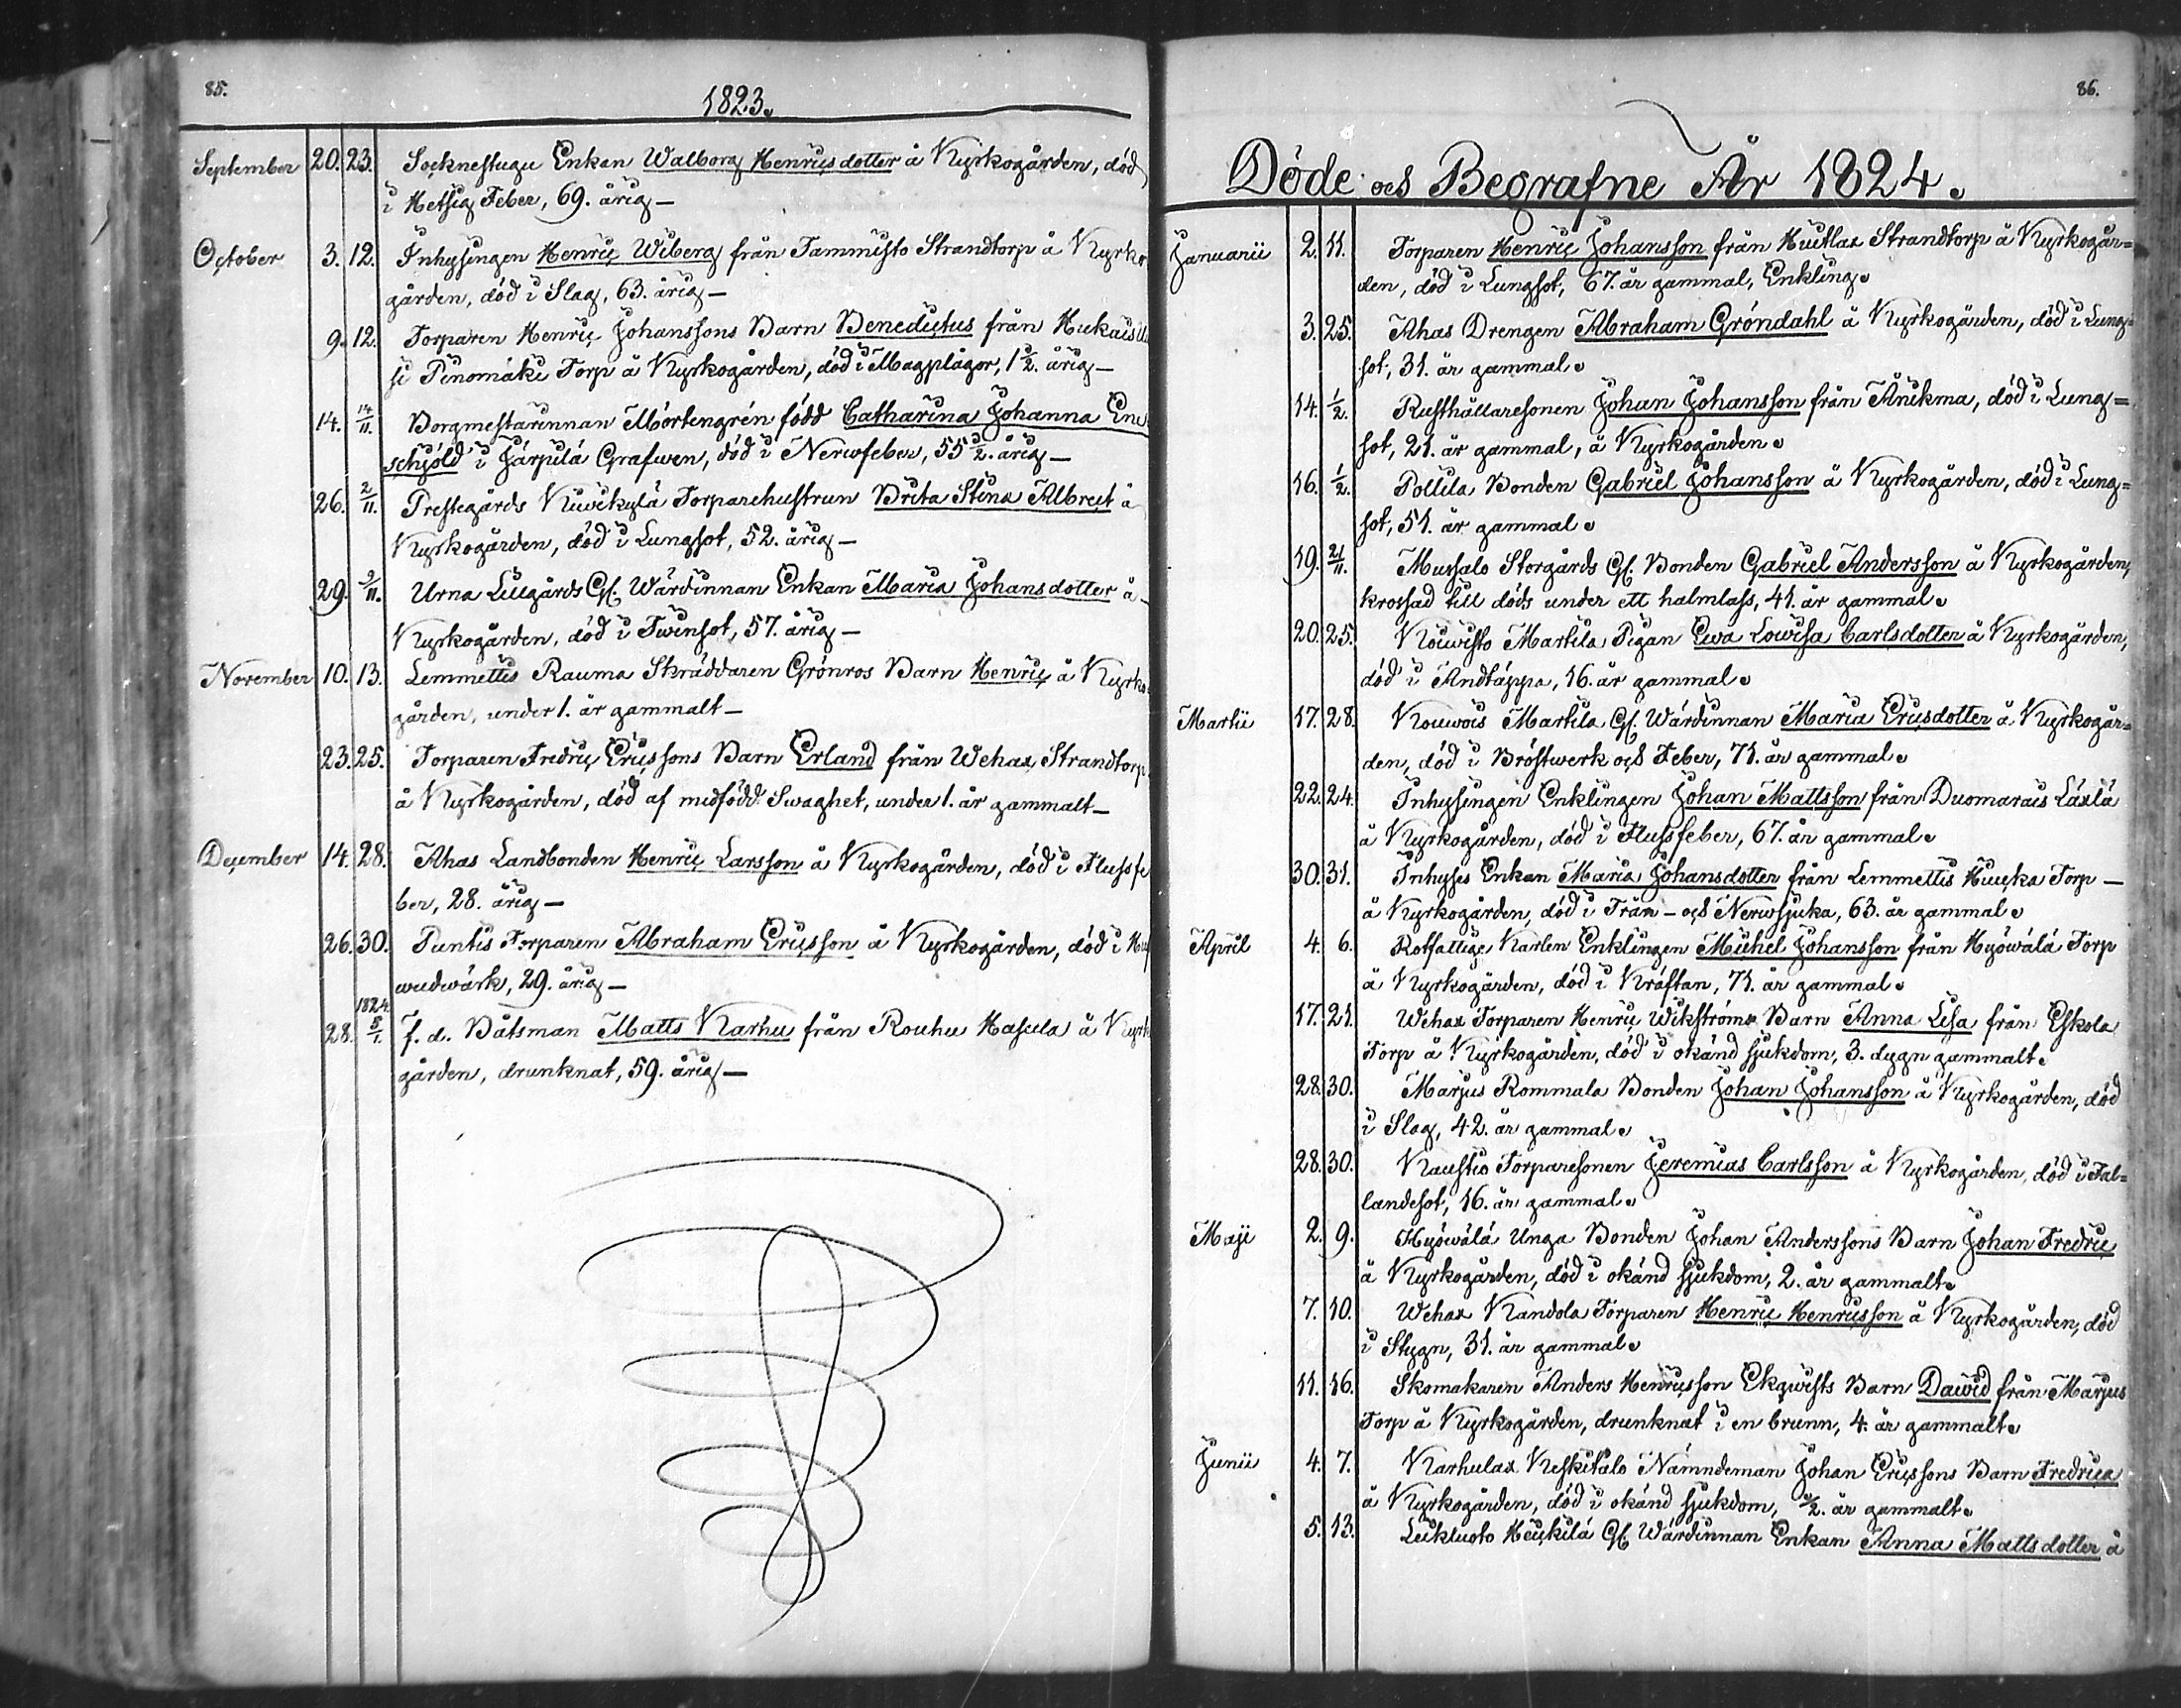 85.
1823.
September 20. 23. Socknestugu Enkan Walborg Henricsdotter å Kyrkogården, död
i Hetsig Feber, 69. årig —
October 3. 12. Inhysingen Henric Wiberg från Tammisto Strandtorp å Kyrko
gården, död i Slag, 63. årig —
9. 12. Torparen Henric Johanssons Barn Benedictus från
Torp å Kyrkogården, död i Magplågor, 1 1/2. årig —
14. 14/11. Borgmestarinnan Mörtengrén född Catharina Johanna Ene
schjöld i Järpilä Grafwen, död i Nerwfeber, 55 1/2. årig —
26. 2/11. Prestegårds Kiwikylä Torparehustrun Brita Stina Albrect å
Kyrkogården, död i Lungsot, 52. årig —
29. 9/11. Urna Lillgårds Gl. Wärdinnan Enkan Maria Johansdotter å
Kyrkogården, död i Twinsot, 57. årig —
November 10. 13. Lemmettis Rauma Skräddaren Grönros Barn Henric å Kyrko
gården, under 1. år gammalt —
23. 25. Torparen Fredric Ericssons Barn Erland från Wehax Strandtorp
å Kyrkogården, död af medfödd Swaghet, under 1. år gammalt —
December 14. 28. Ahas Landbonden Henric Larsson å Kyrkogården, död i Flussfe
ber, 28. årig —
26. 30. Puntis Torparen Abraham Ericsson å Kyrkogården, död i Huf
wudwärk, 29. årig —
1824.
28. 5/1. f. d. Båtsman Matts Karhu från Rouhu Hasula å Kyrk
gården, drunknat, 59. årig —
86.
Döde och Begrafne År 1824.
Januarii 2. 11. Torparen Henric Johansson från Huitlax Strandtorp å Kyrkogår=
den, död i Lungsot, 67. år gammal, Enkling.
3. 25. Ahas Drengen Abraham Gröndahl å Kyrkogården, död i Lung=
sot, 31. år gammal.
14. 1/2. Rusthållaresonen Johan Johansson från Änikma, död i Lung=
sot, 21. år gammal, å Kyrkogården.
16. 1/2. Pollila Bonden Gabriel Johansson å Kyrkogården, död i Lung=
sot, 51. år gammal.
19. 21/11. Mussalo Storgårds Gl. Bonden Gabriel Andersson å Kyrkogården,
krossad till döds under ett halmlass, 41. år gammal.
20. 25. Koiwisto Markila Pigan Ewa Lowisa Carlsdotter å Kyrkogården,
död i Andtäppa, 16. år gammal.
Martii 17. 28. Kouwois Markila Gl. Wärdinnan Maria Ericsdotter å Kyrkogår=
den, död i Bröstwerk och Feber, 71. år gammal.
22. 24. Inhysingen Enklingen Johan Mattsson från Duomarais Laxlä
å Kyrkogården, död i Flussfeber, 67. år gammal.
30. 31. Inhyses Enkan Maria Johansdotter från Lemmettis Kuuska Torp —
å Kyrkogården, död i Trån- och Nerwsjuka, 63. år gammal.
April 4. 6. Rotfattige Karlen Enklingen Michel Johansson från Hyöwälä Torp
å Kyrkogården, död i Kräftan, 71. år gammal.
17. 21. Wehax Torparen Henric Wikströms Barn Anna Lisa från Eskola
Torp å Kyrkogården, död i okänd sjukdom, 3. dygn gammalt.
28. 30. Marjus Rommala Bonden Johan Johansson å Kyrkogården, död
i Slag, 42. år gammal.
28. 30. Kaustio Torparesonen Jeremias Carlsson å Kyrkogården, död i Fal=
landesot, 16. år gammal.
Maji 2. 9. Hyöwälä Unga Bonden Johan Anderssons Barn Johan Fredric
å Kyrkogården, död i okänd sjukdom, 2. år gammalt.
7. 10. Wehax Kandola Torparen Henric Henricsson å Kyrkogården, död
i Stygn, 31. år gammal.
11. 16. Skomakaren Anders Henricsson Ekqwists Barn Dawid från Marjus
Torp å Kyrkogården, drunknat i en brunn, 4. år gammalt.
Junii 4. 7. Karhulax Keskitalo Nämndeman Johan Ericssons Barn Fredrica
å Kyrkogården, död i okänd sjukdom, 1/2. år gammalt.
5. 13. Leikluoto Heickilä Gl. Wärdinnan Enkan Anna Mattsdotter å